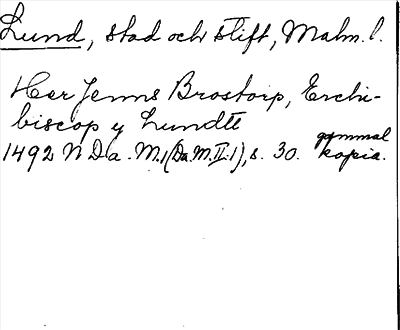 Lund, stad och stift, Malm. l.
Her Jenns Brostorp, Erchi-
biscop y Lundtt
gammal
1492 N Da. M.1 (Da.M.II.1), s. 30. kopia.